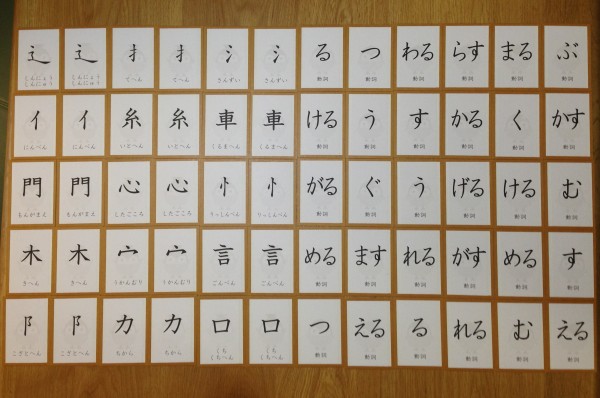 辶 辶 扌 扌 氵 氵 る つ わる らす まる ぶ
しんにょう しんにょう てへん てへん さんずい さんずい 動詞 動詞 動詞 動詞 動詞 動詞
しんにゅう しんにゅう
亻 亻 糸 糸 車 車 ける う す かる く かす
にんべん にんべん いとへん いとへん くるまへん くるまへん 動詞 動詞 動詞 動詞 動詞 動詞
門 門 心 心 忄 忄 がる ぐ う げる ける む
もんがまえ もんがまえ したごころ したごころ りっしんべん りっしんべん 動詞 動詞 動詞 動詞 動詞 動詞
木 木 宀 宀 言 言 める ます れる がす める す
きへん きへん うかんむり うかんむり ごんべん ごんべん 動詞 動詞 動詞 動詞 動詞 動詞
阝 阝 力 力 口 口 つ える る れる む える
こざとへん こざとへん ちから ちから くち くち 動詞 動詞 動詞 動詞 動詞 動詞
くちへん くちへん